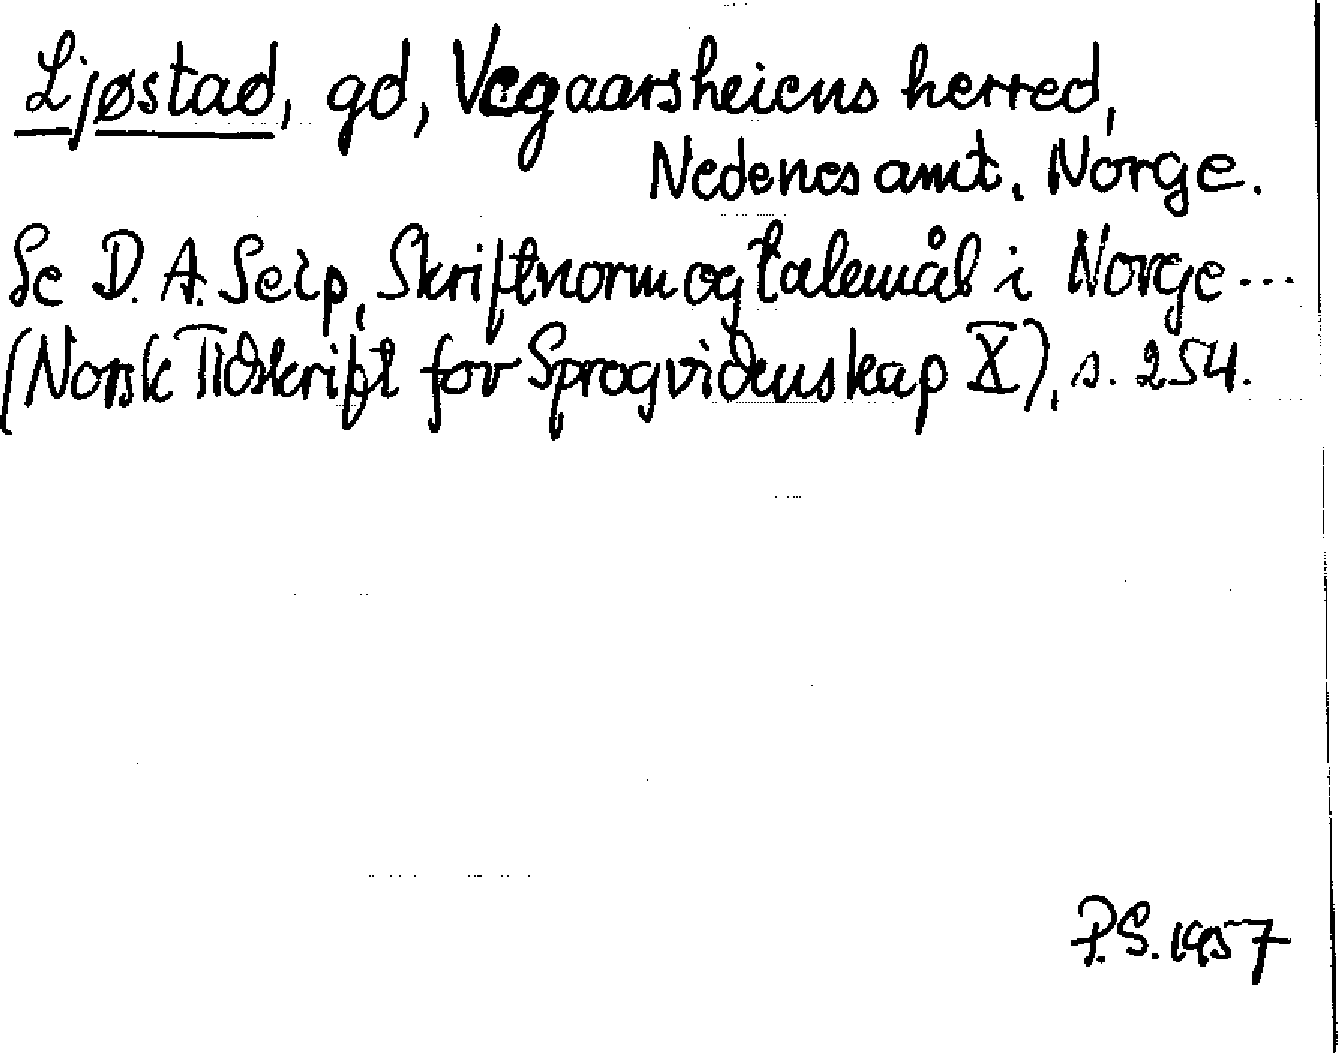 Ljøstad, gd, Vegaarsheiens herred,
Nedenes amt, Norge.
Se D. A. Seip, Skriftnorm og talemål i Norge...
(Norsk Tidskrift for Sprogvidenskap X), s. 254.
P.S. 1957